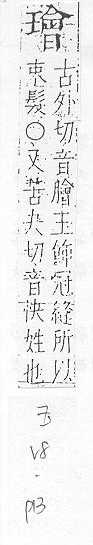 璯
古外切音膾玉飾冠縫所以
束髮○又苦夬切音快姓也
玉
V8
-
p13